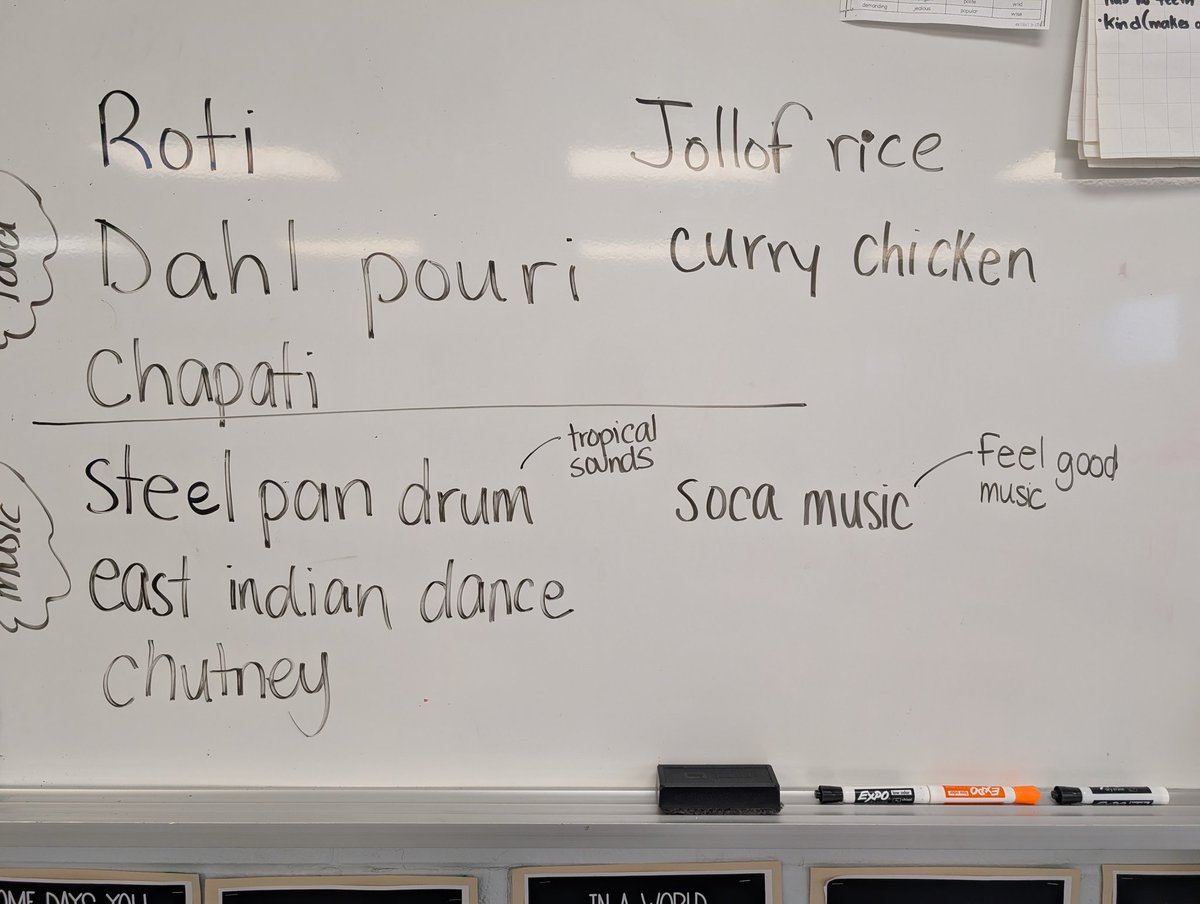 demanding jealous popular wild
wise
Kind(makes
Roti
Jollof rice
food
Dahl pouri
curry chicken
Chapati
tropical
sounds
Steel pan drum
Feel good
music
soca music
music
east indian dance
chutney
EXPO
EXPO
OME DAYS YOU
IN A WORLD